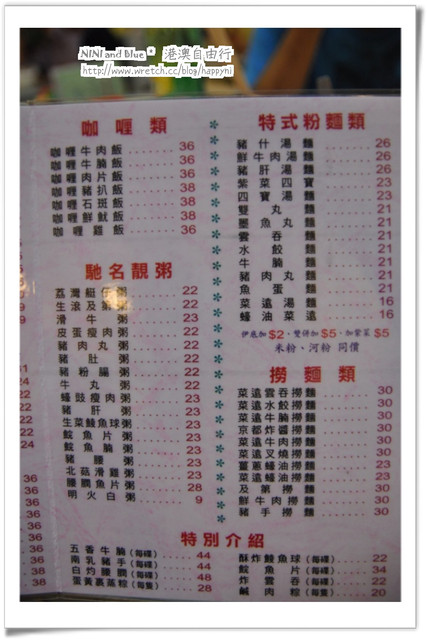 NINI and Blue * 港澳自由行
http://www.wretch.cc/blog/happyni
咖喱類
咖喱牛肉飯 36
咖喱牛腩飯 36
咖喱肉片飯 36
咖喱豬扒飯 38
咖喱石斑飯 38
咖喱鮮魷飯 38
咖喱雞飯 36
馳名靚粥
荔灣艇仔粥 22
生滾及第粥 22
滑牛粥 23
皮蛋瘦肉粥 22
豬肉丸粥 22
豬肚粥 22
豬粉腸粥 22
牛丸粥 22
蠔豉瘦肉粥 23
豬肝粥 23
生菜鯪魚球粥 23
鯇魚片粥 23
鯇魚腩粥 23
豬腰粥 23
北菇滑雞粥 23
膶魚片粥 28
明火白粥 9
特式粉麵類
豬什湯麵 26
鮮牛肉湯麵 26
豬肝湯麵 26
紫菜四寶麵 23
四寶湯麵 23
雙丸麵 21
墨魚丸麵 21
雲吞麵 21
水餃麵 21
牛腩麵 21
豬肉丸麵 21
魚蛋麵 21
菜遠湯麵 16
蠔油菜遠 16
伊底加$2、雙併加$5、加紫菜$5
米粉、河粉 同價
撈麵類
菜遠雲吞撈麵 30
菜遠水餃撈麵 30
菜遠牛腩撈麵 30
京都炸醬撈麵 30
菜遠牛肉撈麵 30
菜遠叉燒撈麵 30
薑蔥蠔油撈麵 23
菜遠蠔油撈麵 23
及第撈麵 30
鮮牛肉撈麵 30
豬手撈麵 30
特別介紹
五香牛腩(每碟) 44
南乳豬手(每碟) 44
白灼膶(每碟) 48
蛋黃裹蒸粽(每隻) 28
酥炸鯪魚球(每碟) 22
鯇魚片(每碟) 34
炸雲吞(每碟) 22
鹹肉粽(每隻) 20